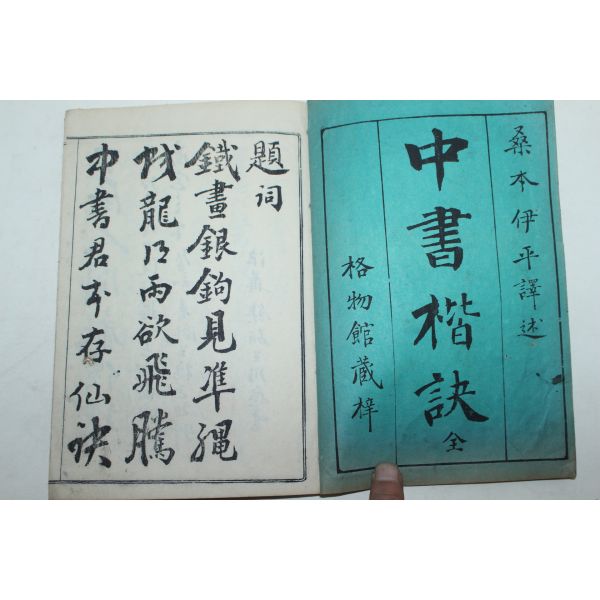 桑本伊平譯述
中書楷訣 全
格物館藏梓
題詞
鐵畫銀鉤見準繩
蛟龍得雨欲飛騰
中書君本存仙訣